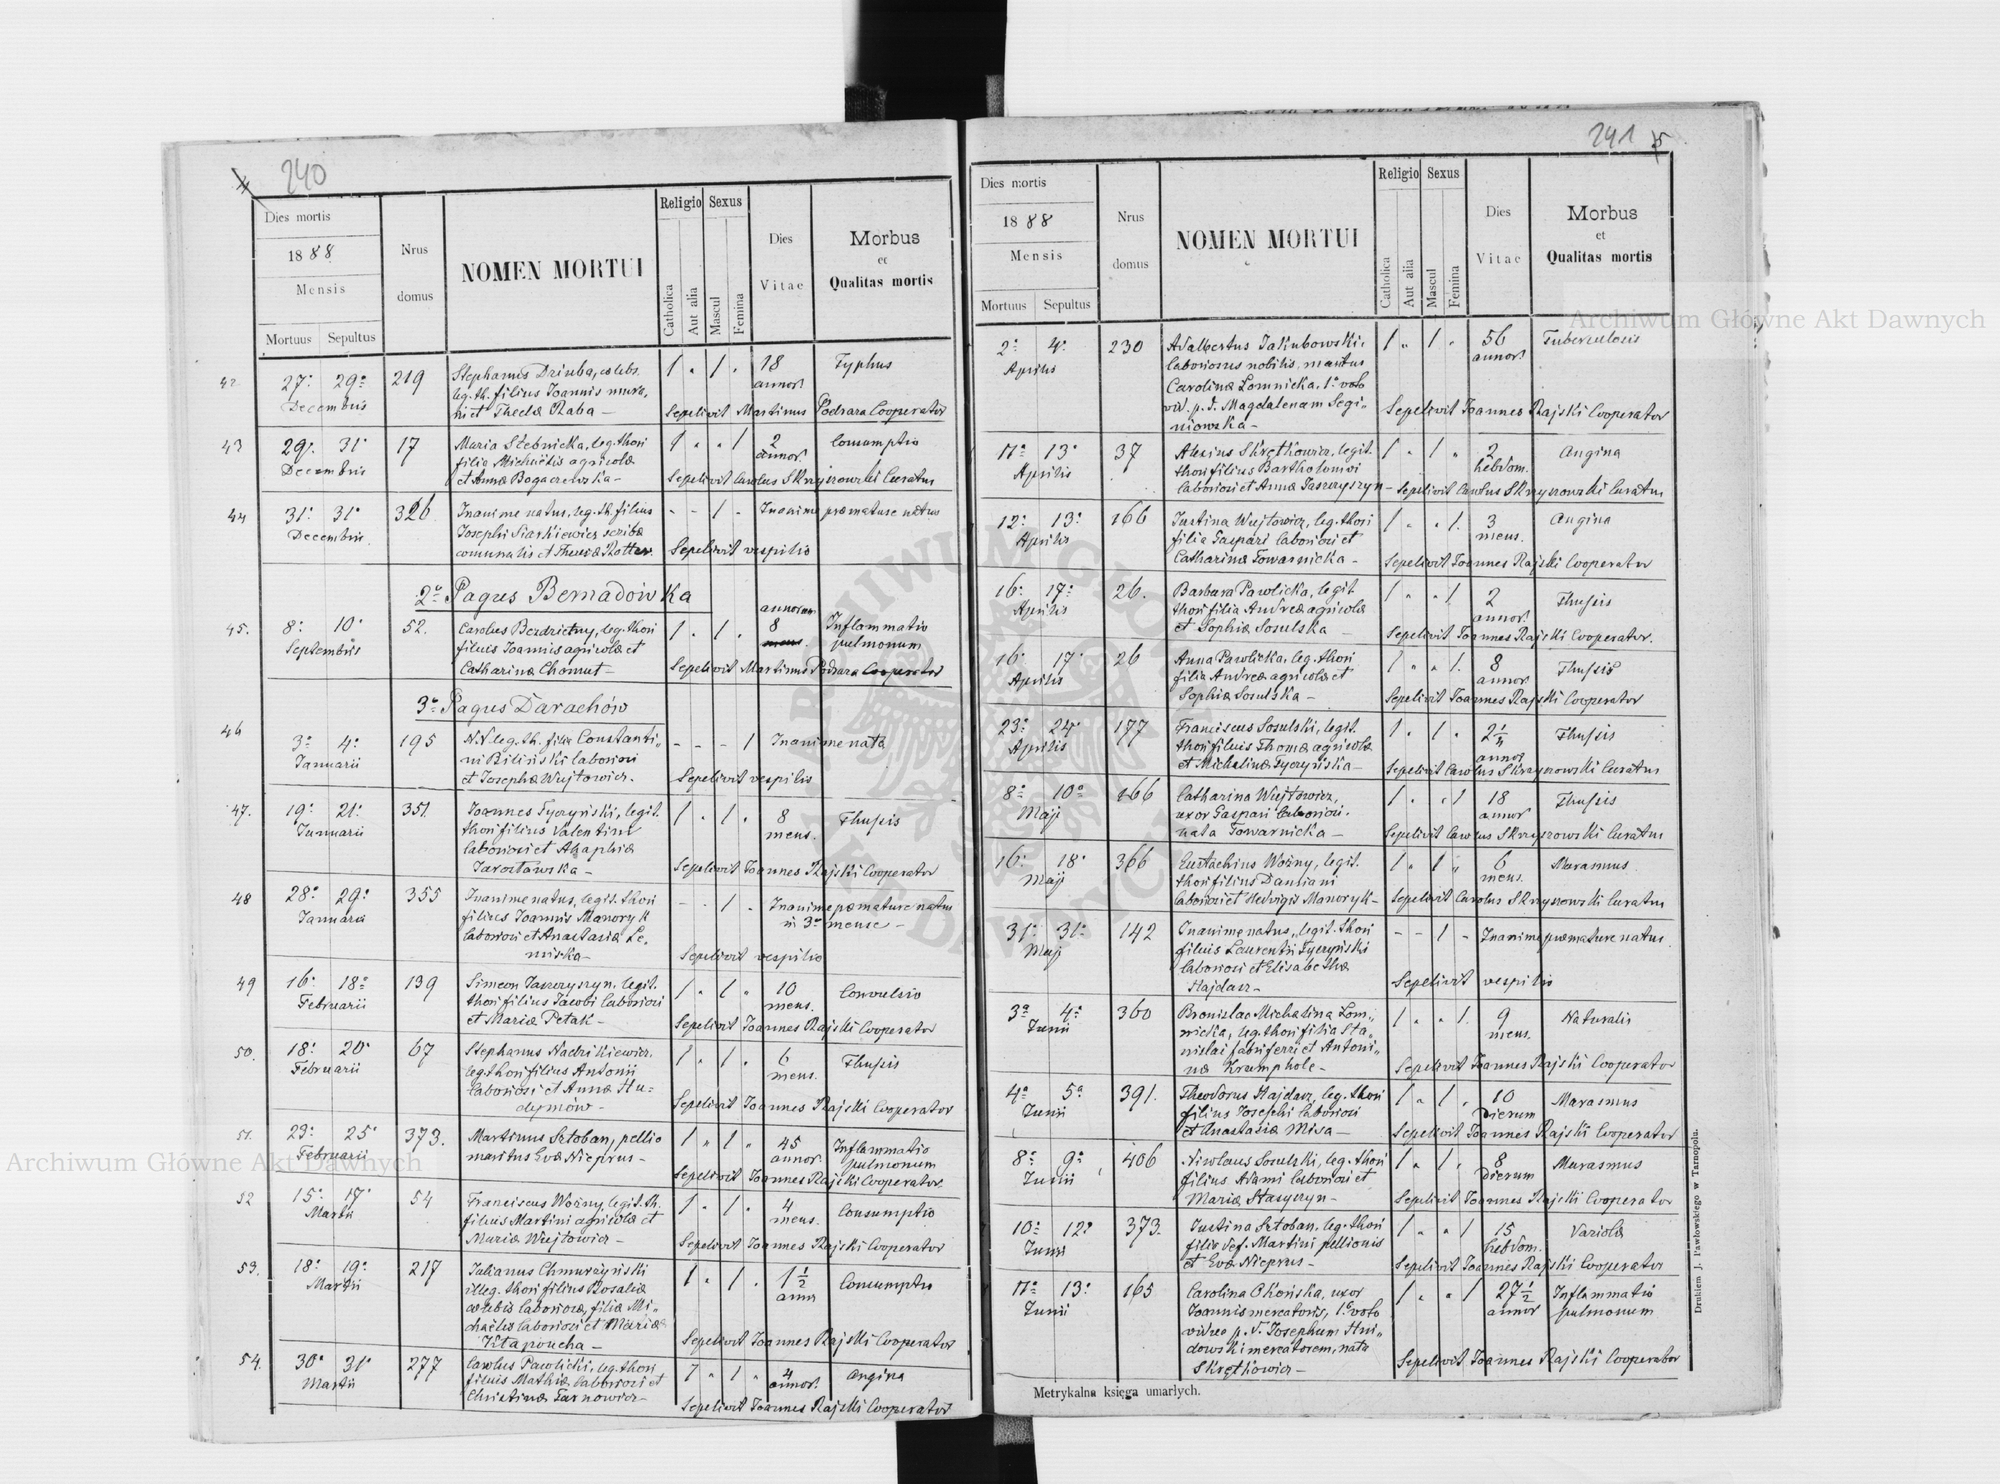 240
Dies mortis
1888
Mensis
Mortuus Sepultus
Nrus domus
NOMEN MORTUI
Religio
Catholica
Aut alia
Sexus
Mascul
Femina
Dies Vitae
Morbus
et
Qualitas mortis
42 27. 29. 219 Stephanus Dziuba, coelebs 1 " 1 " 18 Typhus
Decembris leg. th. filius Joannis mura- annor.
rii et Theclæ Raba – Sepelivit Martinus Podrara Cooperator
43 29. 31. 17 Maria Stebnicka, leg. thori 1 " " 1 2 Consumptio
Decembris filia Michaëlis agricolæ annor.
et Annæ Bogaczewska – Sepelivit Carolus Skrzyszowski Curatus
44 31. 31. 326 Inanime natus, leg. th. filius - - 1 - Inanime præmature natus
Decembris Josephi Siarkiewicz scribæ
communalis et Theresiæ Rotter. Sepelivit vespilio
2o Pagus Bernadówka
annorum
45. 8. 10. 52. Carolus Bezdrietny, leg. thori 1 " 1 " 8 Inflammatio
Septembris filius Joannis agricolæ et pulmonum
Catharinæ Chomut – Sepelivit Martinus Podrara Cooperator
3o Pagus Darachów
46 3. 4. 195 N.N. leg. th. filia Constanti- - - - 1 Inanime nata
Januarii ni Biliński laboriosi
et Josephæ Wujtowicz. Sepelivit vespilio
47. 19. 21. 351. Joannes Tyczyński, legit. 1 " 1 " 8 Thysis
Januarii thori filius Valentini mens.
laboriosi et Agaphiæ
Jarosławska – Sepelivit Joannes Rajski Cooperator
48 28. 29. 355 Inanime natus, legit. thori - - 1 - Inanime præmature natus
Januarii filius Joannis Manoryk in 3o mense –
laboriosi et Anastasiæ Le-
niska – Sepelivit vespilio
49 16. 18. 139 Simeon Jaszczyszyn, legit. 1 " 1 " 10 Convulsio
Februarii thori filius Jacobi laboriosi mens.
et Mariæ Petak – Sepelivit Joannes Rajski Cooperator
50. 18. 20. 67 Stephanus Nadzikiewicz, 1 " 1 " 6 Thysis
Februarii leg. thori filius Antonii mens.
laboriosi et Annæ Hu-
dymów – Sepelivit Joannes Rajski Cooperator
51. 23. 25. 373. Martinus Sztoban, pellio 1 " 1 " 45 Inflammatio
Februarii maritus Evæ Nieprus – annor. pulmonum
Sepelivit Joannes Rajski Cooperator
52 15. 17. 54 Franciscus Woźny, legit. th. 1 " 1 " 4 Consumptio
Martii filius Martini agricolæ et mens.
Mariæ Wujtowicz – Sepelivit Joannes Rajski Cooperator
53. 18. 19. 217 Julianus Chmurzyński 1 " 1 " 1 1/2 Consumptio
Martii illeg. thori filius Rosaliæ anni
cœlebis laboriosæ, filiæ Mi-
chaëlis laboriosi et Mariæ
Kłapoucha – Sepelivit Joannes Rajski Cooperator
54. 30. 31. 277 Carolus Pawlicki, leg. thori 1 " 1 " 4 Angina
Martii filius Mathiæ laboriosi et annor.
Christinæ Tarnowicz – Sepelivit Joannes Rajski Cooperator
241 5
Dies mortis
1888
Mensis
Mortuus Sepultus
Nrus domus
NOMEN MORTUI
Religio
Catholica
Aut alia
Sexus
Mascul
Femina
Dies Vitae
Morbus
et
Qualitas mortis
2. 4. 230 Adalbertus Jakubowski 1 " 1 " 56 Tuberculosis
Aprilis laboriosus nobilis, maritus annor.
Carolinæ Łomnicka, 1o voto
vid. p. d. Magdalenam Segi-
niowska – Sepelivit Joannes Rajski Cooperator
11. 13. 37 Alexius Skrętkowicz, legit. 1 " 1 " 2 Angina
Aprilis thori filius Bartholomæi hebdom.
laboriosi et Annæ Jaszczyszyn – Sepelivit Carolus Skrzyszowski Curatus
12. 13. 166 Justina Wujtowicz, leg. thori 1 " " 1. 3 Angina
Aprilis filia Gaspari laboriosi et mens.
Catharinæ Towarnicka – Sepelivit Joannes Rajski Cooperator
16. 17. 26. Barbara Pawlicka, legit 1 " " 1 2 Thysis
Aprilis thori filia Andreæ agricolæ annor.
et Sophiæ Sosulska – Sepelivit Joannes Rajski Cooperator.
16. 17. 26 Anna Pawlicka, leg. thori 1 " " 1. 8 Thysis
Aprilis filia Andreæ agricolæ et annor.
Sophiæ Sosulska – Sepelivit Joannes Rajski Cooperator
23. 24. 177 Franciscus Sosulski, legit. 1 " 1 " Thysis
Aprilis thori filius Thomæ agricolæ annor.
et Michalinæ Tyczyńska – Sepelivit Carolus Skrzyszowski Curatus
8. 10. 166 Catharina Wujtowicz, 1 " " 1 18 Thysis
Maji uxor Gaspari laboriosi, annor
nata Towarnicka – Sepelivit Carolus Skrzyszowski Curatus
16. 18. 366 Eustachius Woźny, legit. 1 " 1 " 6 Marasmus
Maji thori filius Damiani mens.
laboriosi et Hedvigis Manoryk – Sepelivit Carolus Skrzyszowski Curatus
31. 31. 142 Inanime natus, legit. thori - - 1 - Inanime præmature natus
Maji filius Laurentii Tyczyński
laboriosi et Elisabethæ
Hajdasz – Sepelivit vespilio
3. 4. 360 Bronislaa Michalina Łom- 1 " " 1. 9 Naturalis
Junii nicka, leg. thori filia Sta- mens.
nislai fabri ferri et Antoni-
næ Krumphole – Sepelivit Joannes Rajski Cooperator
4. 5. 391. Theodorus Hajdasz, leg. thori 1 " 1 " 10 Marasmus
Junii filius Josephi laboriosi Dierum
et Anastasiæ Misa – Sepelivit Joannes Rajski Cooperator
8. 9. 406 Nicolaus Sosulski, leg. thori 1 " 1 " 8 Marasmus
Junii filius Adami laboriosi et Dierum
Mariæ Stasyszyn – Sepelivit Joannes Rajski Cooperator
10. 12. 373. Justina Sztoban, leg. thori 1 " " 1 15 Variola
Junii filia def. Martini pellionis hebdom.
et Evæ Nieprus – Sepelivit Joannes Rajski Cooperator
11. 13. 165 Carolina Okońska, uxor 1 " " 1 27 1/2 Inflammatio
Junii Joannis mercatoris, 1o voto annor pulmonum
vidua p. d. Josephum Hni-
dowski mercatorem, nata
Skrętkowicz – Sepelivit Joannes Rajski Cooperator
Metrykalna księga umarłych.
Drukiem J. Pawłowskiego w Tarnopolu.
Archiwum Główne Akt Dawnych
Archiwum Główne Akt Dawnych
ARCHIWUM GŁÓWNE AKT DAWNYCH